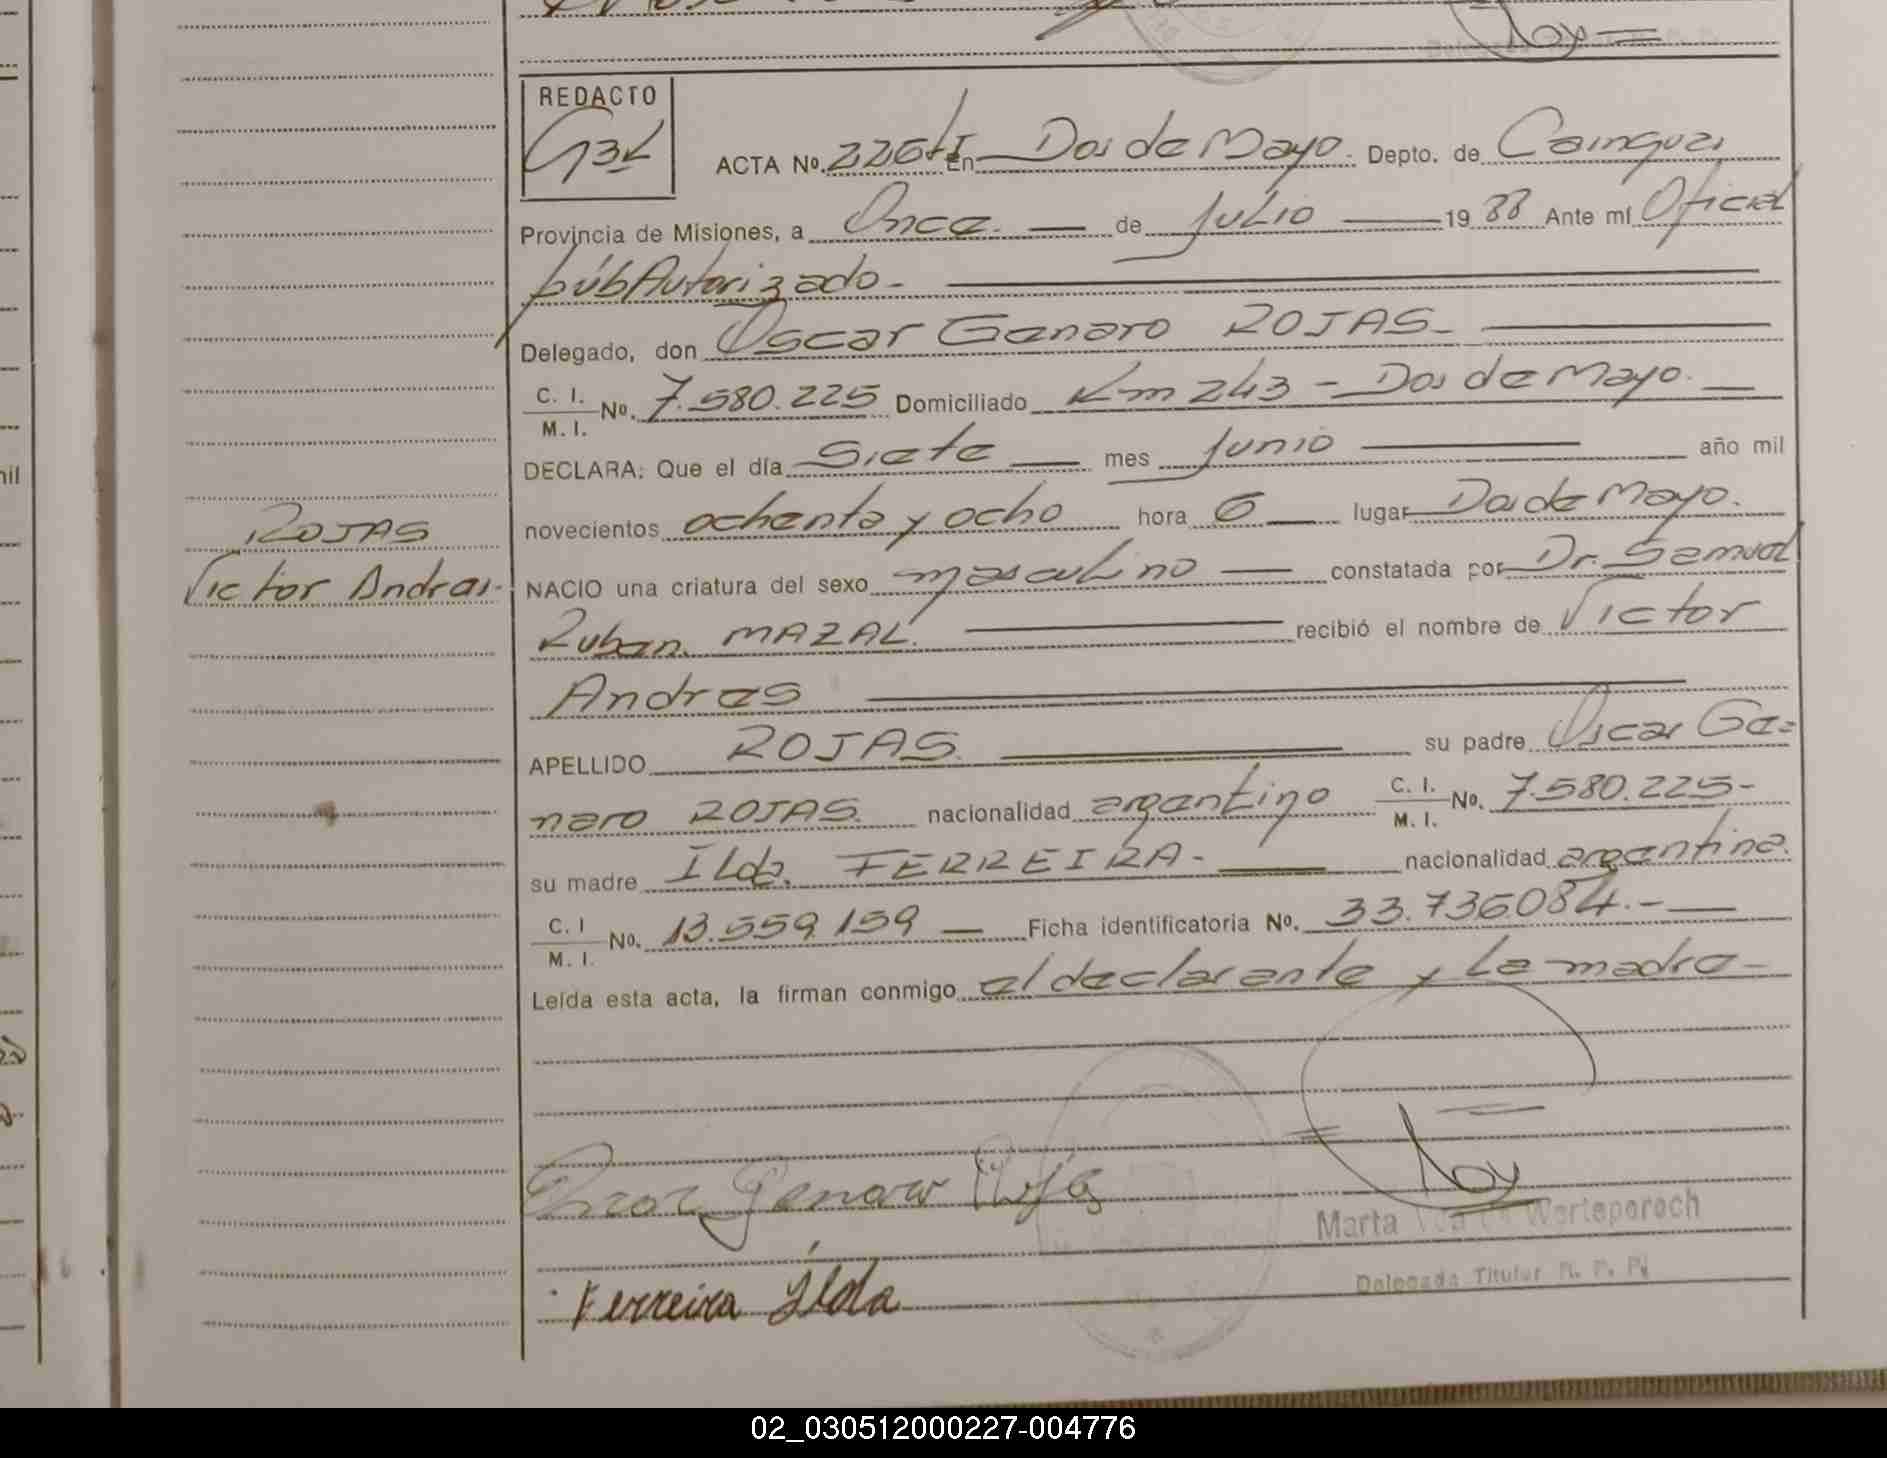 REDACTO
ACTA Nº. 226 tI En Dos de Mayo. Depto. de Cainguas
Provincia de Misiones, a Once. de Julio 19 88 Ante mí Oficial
púb Autorizado.
Delegado, don Oscar Genaro ROJAS.
C. I.
M. I. Nº. 7.580.225 Domiciliado Km 243 - Dos de Mayo.
DECLARA: Que el día Siete mes Junio año mil
novecientos ochenta y ocho hora 6 lugar Dos de Mayo.
ROJAS
Victor Andres.
NACIO una criatura del sexo masculino constatada por Dr. Samuel
Ruben. MAZAL. recibió el nombre de Victor
Andres
APELLIDO ROJAS. su padre Oscar Ge=
naro ROJAS. nacionalidad argentino C. I.
M. I. Nº. 7.580.225-
su madre Ilda. FERREIRA- nacionalidad argentina.
C. I
M. I. Nº. 13.559.159 Ficha identificatoria Nº. 33.736.084.-
Leída esta acta, la firman conmigo el declarante y la madre-
Oscar Genaro Rojas
Marta
Delegada Titular R. P. P.
Ferreira Ilda
02_030512000227-004776